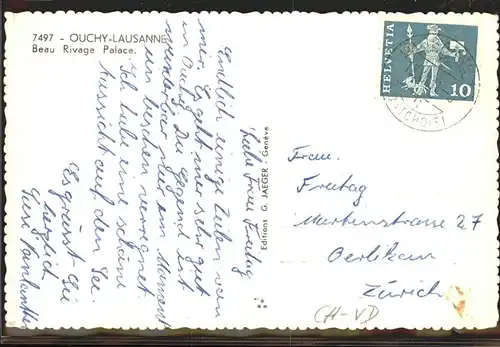 7497 - OUCHY-LAUSANNE
Beau Rivage Palace.
Liebe Frau Freitag
Endlich einige Zeilen von
mir. Es geht mir sehr gut
in Ouchy. Die Gegend ist
wunderbar, nur im Moment
ein bisschen verregnet.
Ich habe eine schöne
Aussicht auf den See.
Es grüsst Sie
herzlich
Editions G. JAEGER - Genève
HELVETIA
10
Frau
Freitag
27
Oerlikon
Zürich
(CH-VD)